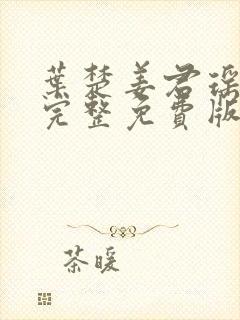 葉楚姜君瑶
完整免費版
茶暖